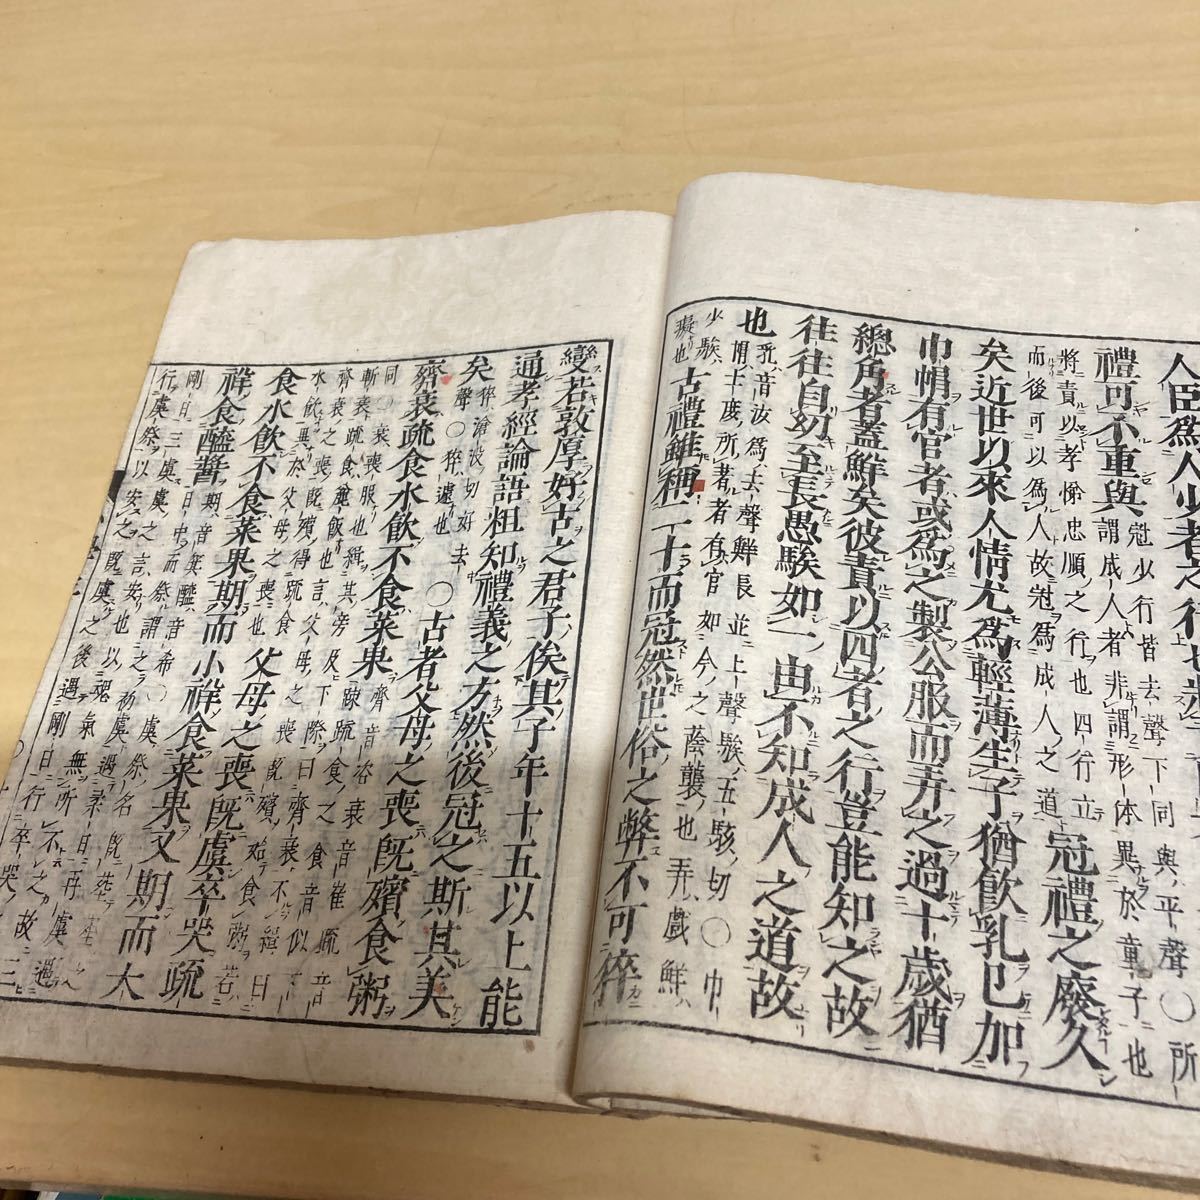 人臣爲人少者之行
禮可不重與 冠少行皆去聲下同與平聲○所謂成人者非謂形體異於童子也
將責以孝悌忠順之行也四行立而後可以爲人故冠爲成人之道 冠禮之廢久
矣近世以來人情尤爲輕薄生子猶飮乳已加
巾帽有官者或爲之製公服而弄之過十歲猶
總角者蓋鮮矣彼責以四者之行豈能知之故
往往自幼至長愚騃如一由不知成人之道故
也 乳音汝爲去聲鮮長並上聲騃五駭切○巾帽士庶所著者有官如今之蔭襲也弄戲鮮
少騃癡也 古禮雖稱二十而冠然世俗之弊不可猝
變若敦厚好古之君子俟其子年十五以上能
通孝經論語粗知禮義之方然後冠之斯其美
矣 猝滄沒切好去聲○猝遽也 ○古者父母之喪旣殯食粥
齊衰疏食水飮不食菜果 齊音咨衰音崔疏音
同○衰喪服也緝其旁及下際曰齊衰不緝曰斬衰疏食麄飯也言父母之喪旣殯始食粥若
齊衰之喪旣殯得疏食水飮異於父母之喪也 父母之喪旣虞卒哭疏
食水飮不食菜果期而小祥食菜果又期而大
祥食醯醬 期音朞醯音希○虞祭名旣葬
剛日三虞虞之言安也
行虞祭以安之旣虞之後遇剛日